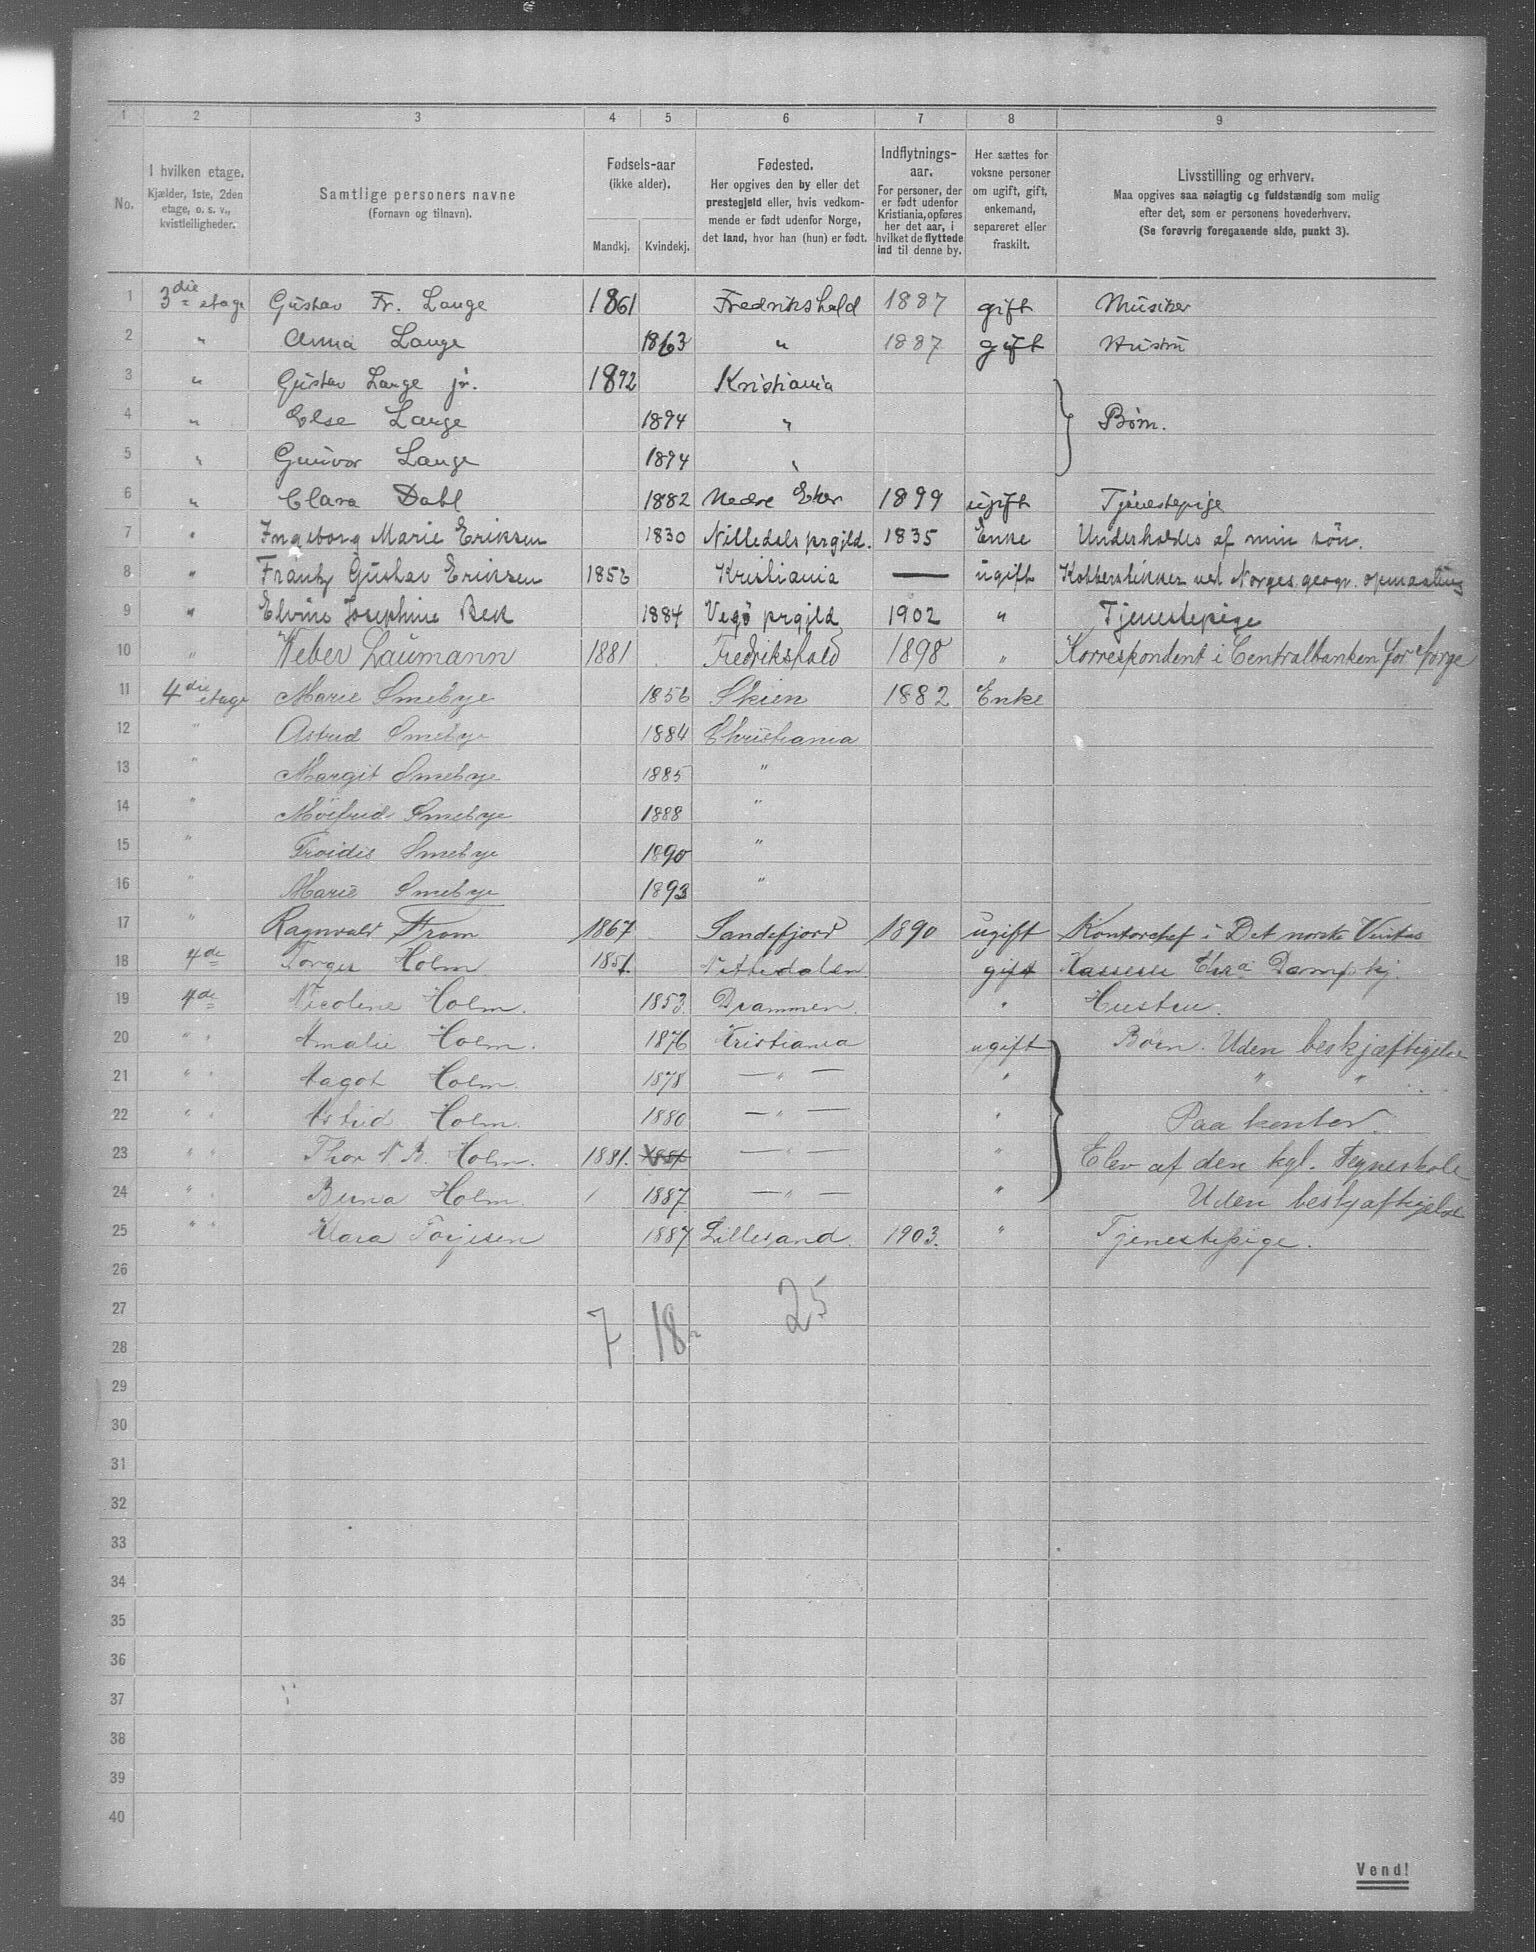 1 2 3 4 5 6 7 8 9
No.
I hvilken etage.
Kjælder, 1ste, 2den
etage, o. s. v.,
kvistleiligheder.
Samtlige personers navne
(Fornavn og tilnavn).
Fødsels-aar
(ikke alder).
Mandkj. Kvindekj.
Fødested.
Her opgives den by eller det
prestegjeld eller, hvis vedkom-
mende er født udenfor Norge,
det land, hvor han (hun) er født.
Indflytnings-
aar.
For personer, der
er født udenfor
Kristiania, opføres
her det aar, i
hvilket de flyttede
ind til denne by.
Her sættes for
voksne personer
om ugift, gift,
enkemand,
separeret eller
fraskilt.
Livsstilling og erhverv.
Maa opgives saa nøiagtig og fuldstændig som mulig
efter det, som er personens hovederhverv.
(Se forøvrig foregaaende side, punkt 3).
1 3die etage Gustav Fr. Lange 1861 Fredrikshald 1887 gift Musiker
2 " Anna Lange 1863 " 1887 gift Hustru
3 " Gustav Lange jr. 1892 Kristiania
4 " Else Lange 1894 " Børn.
5 " Gunvor Lange 1894 "
6 " Clara Dahl 1882 Nedre Eker 1899 ugift Tjenestepige
7 " Ingeborg Marie Eriksen 1830 Nittedals prgjld. 1835 Enke Underholdes af min søn.
8 " Frantz Gustav Eriksen 1852 Kristiania — ugift Kobberstikker ved Norges geogr. opmaaling
9 " Elvine Josephine Bek 1884 Vegø prgjld 1902 " Tjenestepige
10 " Weber Laumann 1881 Fredrikshald 1898 " Korrespondent i Centralbanken for Norge
11 4die etage Marie Smebye 1856 Skien 1882 Enke
12 " Astrid Smebye 1884 Christiania
13 " Margit Smebye 1885 "
14 " Møifrid Smebye 1888 "
15 " Froidis Smebye 1890 "
16 " Marie Smebye 1893 "
17 " Ragnvald From 1867 Sandefjord 1890 ugift Kontorchef i Det norske Veritas
18 4de Torger Holm 1851. Nittedalen gift Kasserer Chra Dampskj.
19 4de Nicoline Holm. 1853. Drammen. " Hustru.
20 " " Amalie Holm. 1876 Kristiania ugift Børn. Uden beskjæftigelse
21 " " Aagot Holm. 1878 — " — " " "
22 " " Astrid Holm. 1880 — " — " Paa kontor.
23 " " Thor N. B. Holm. 1881. — " — " Elev af den kgl. Tegneskole
24 " " Berna Holm. 1887 — " — " Uden beskjæftigelse
25 " " Klara Torjesen 1887 Lillesand. 1903. " Tjenestepige.
26
27
28
7 18 25
29
30
31
32
33
34
35
36
37
38
39
40
Vend!